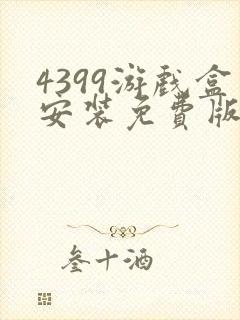 4399游戏盒
安装免費版
叁十酒